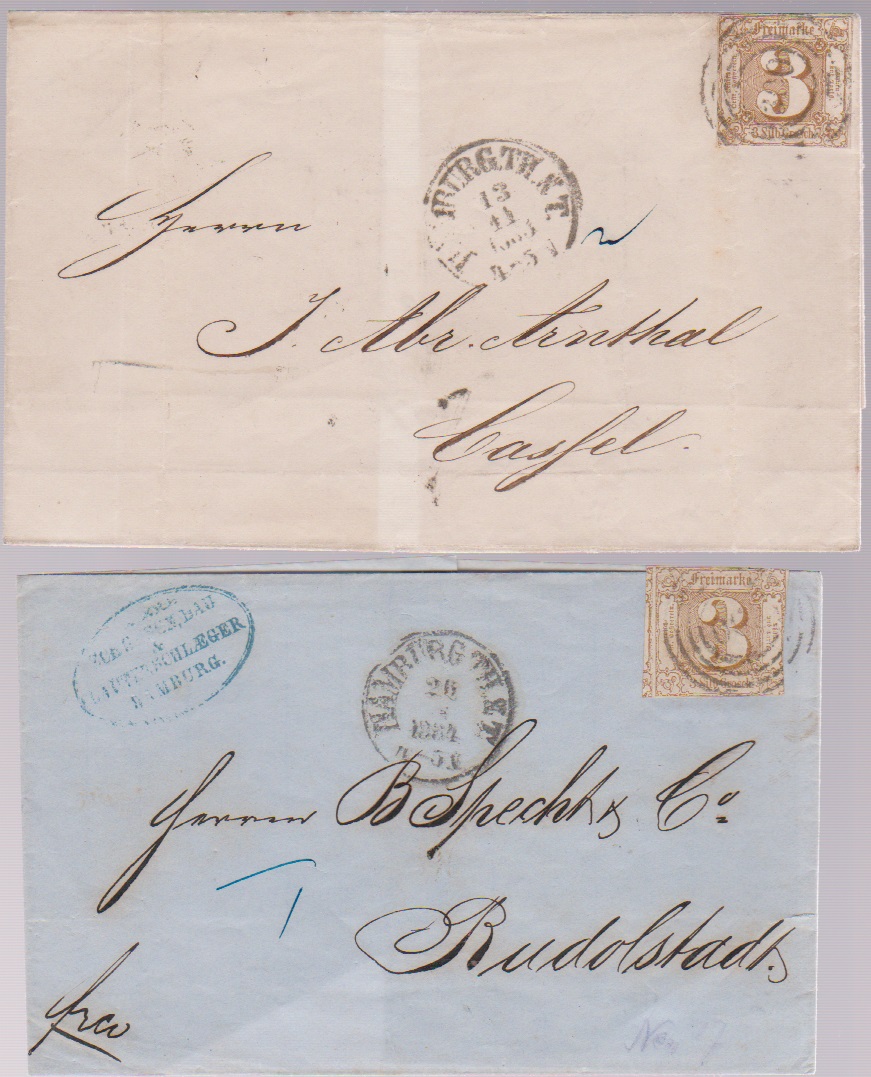 Freimarke
3
HAMBURG TH. & T.
13
11
4-5
Herrn
J. Abr. Arnthal
Cassel.
Freimarke
3
&
LAUTERSCHLÆGER
HAMBURG.
HAMBURG TH. & T.
26
1864
4-5
Herrn B Specht & Co
Rudolstadt.
frco